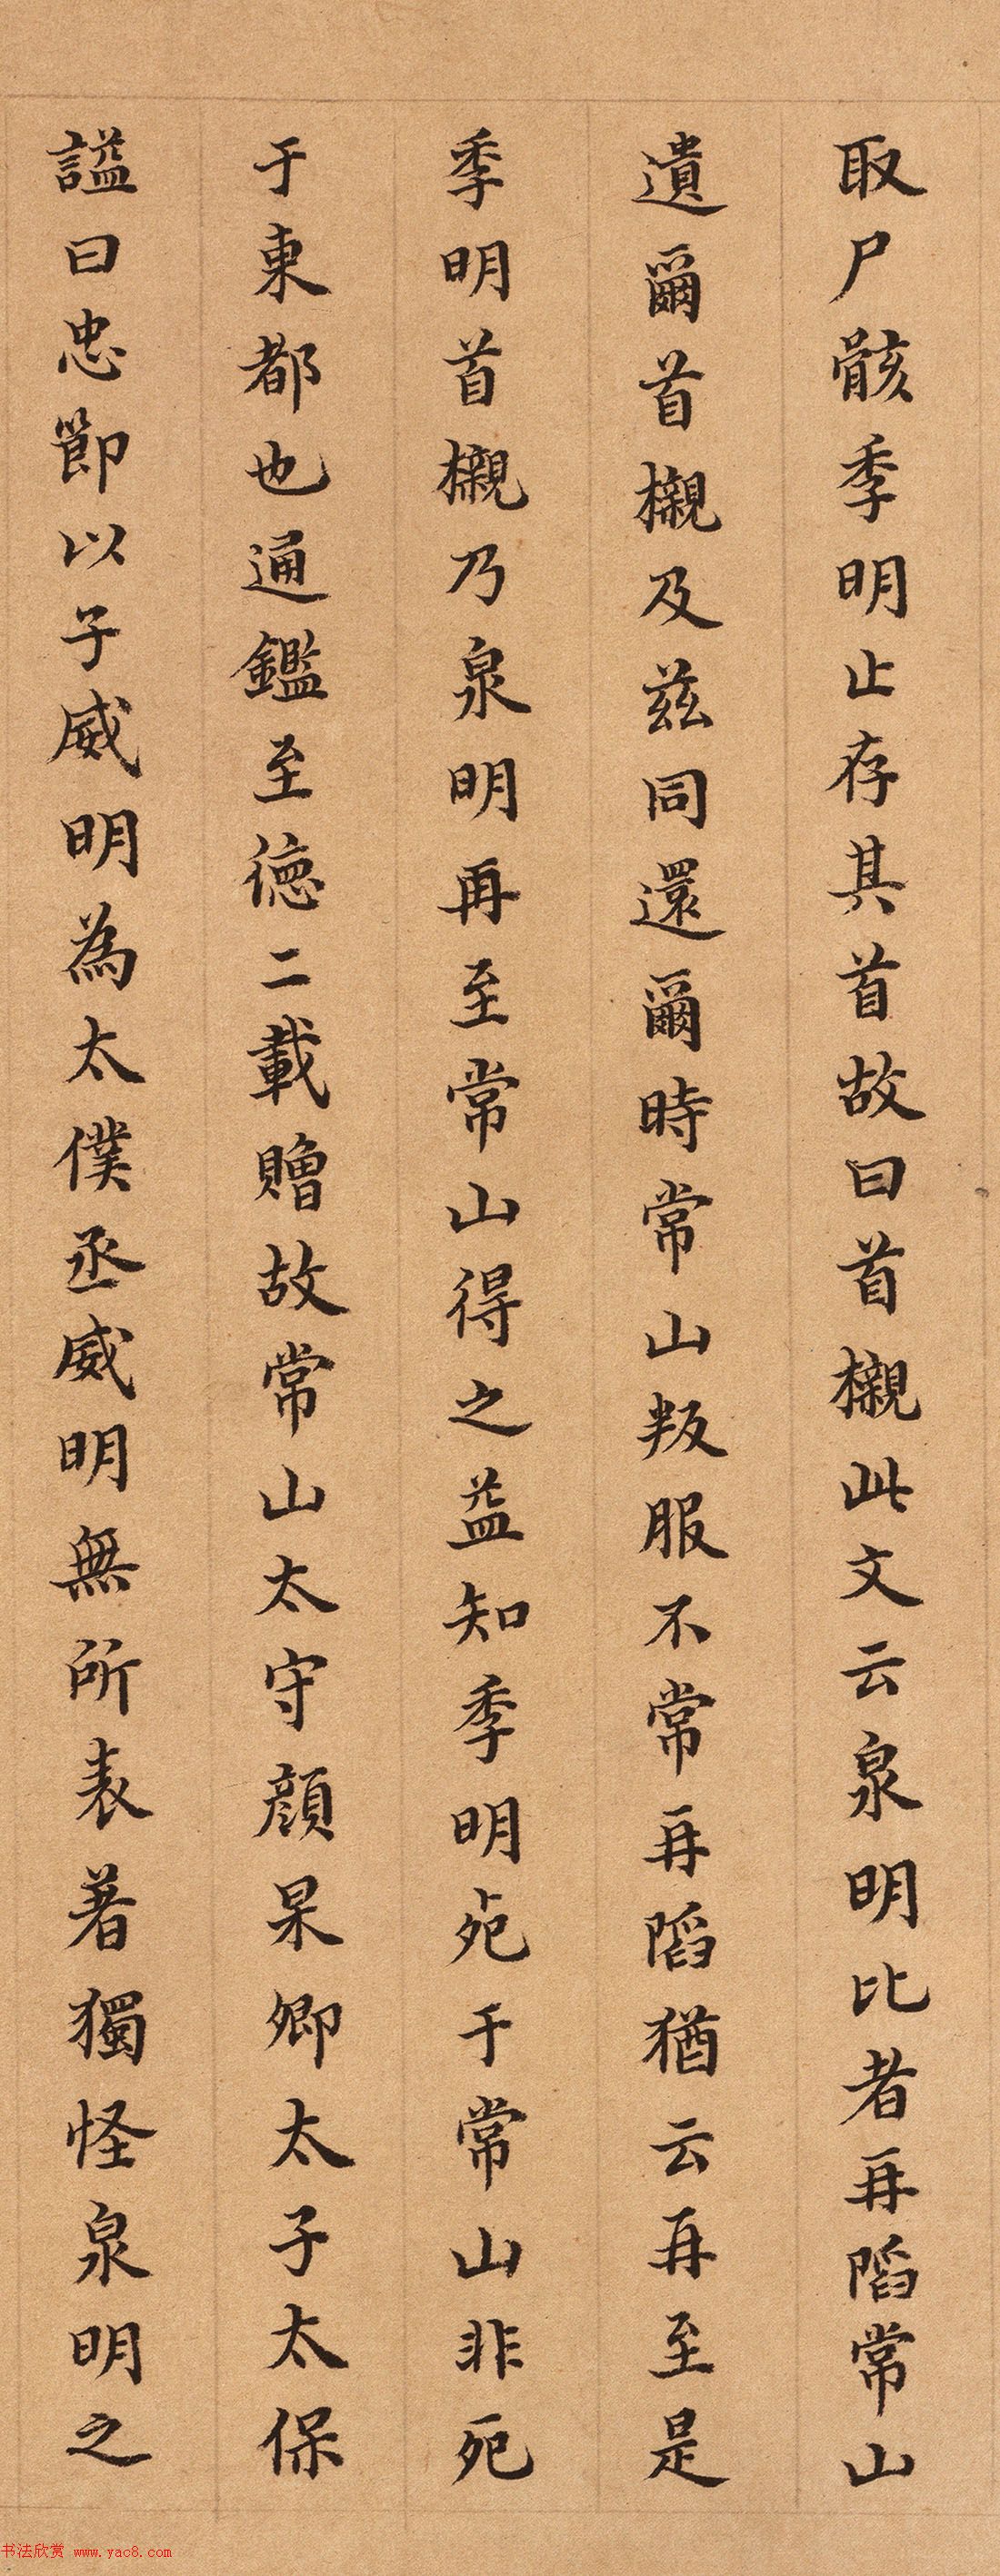 取尸骸季明止存其首故曰首櫬此文云泉明比者再陷常山
遺爾首櫬及兹同還爾時常山叛服不常再陷猶云再至是
季明首櫬乃泉明再至常山得之益知季明死于常山非死
于東都也通鑑至德二載贈故常山太守顔杲卿太子太保
謚曰忠節以子威明為太僕丞威明無所表著獨怪泉明之
书法欣赏 www.yac8.com